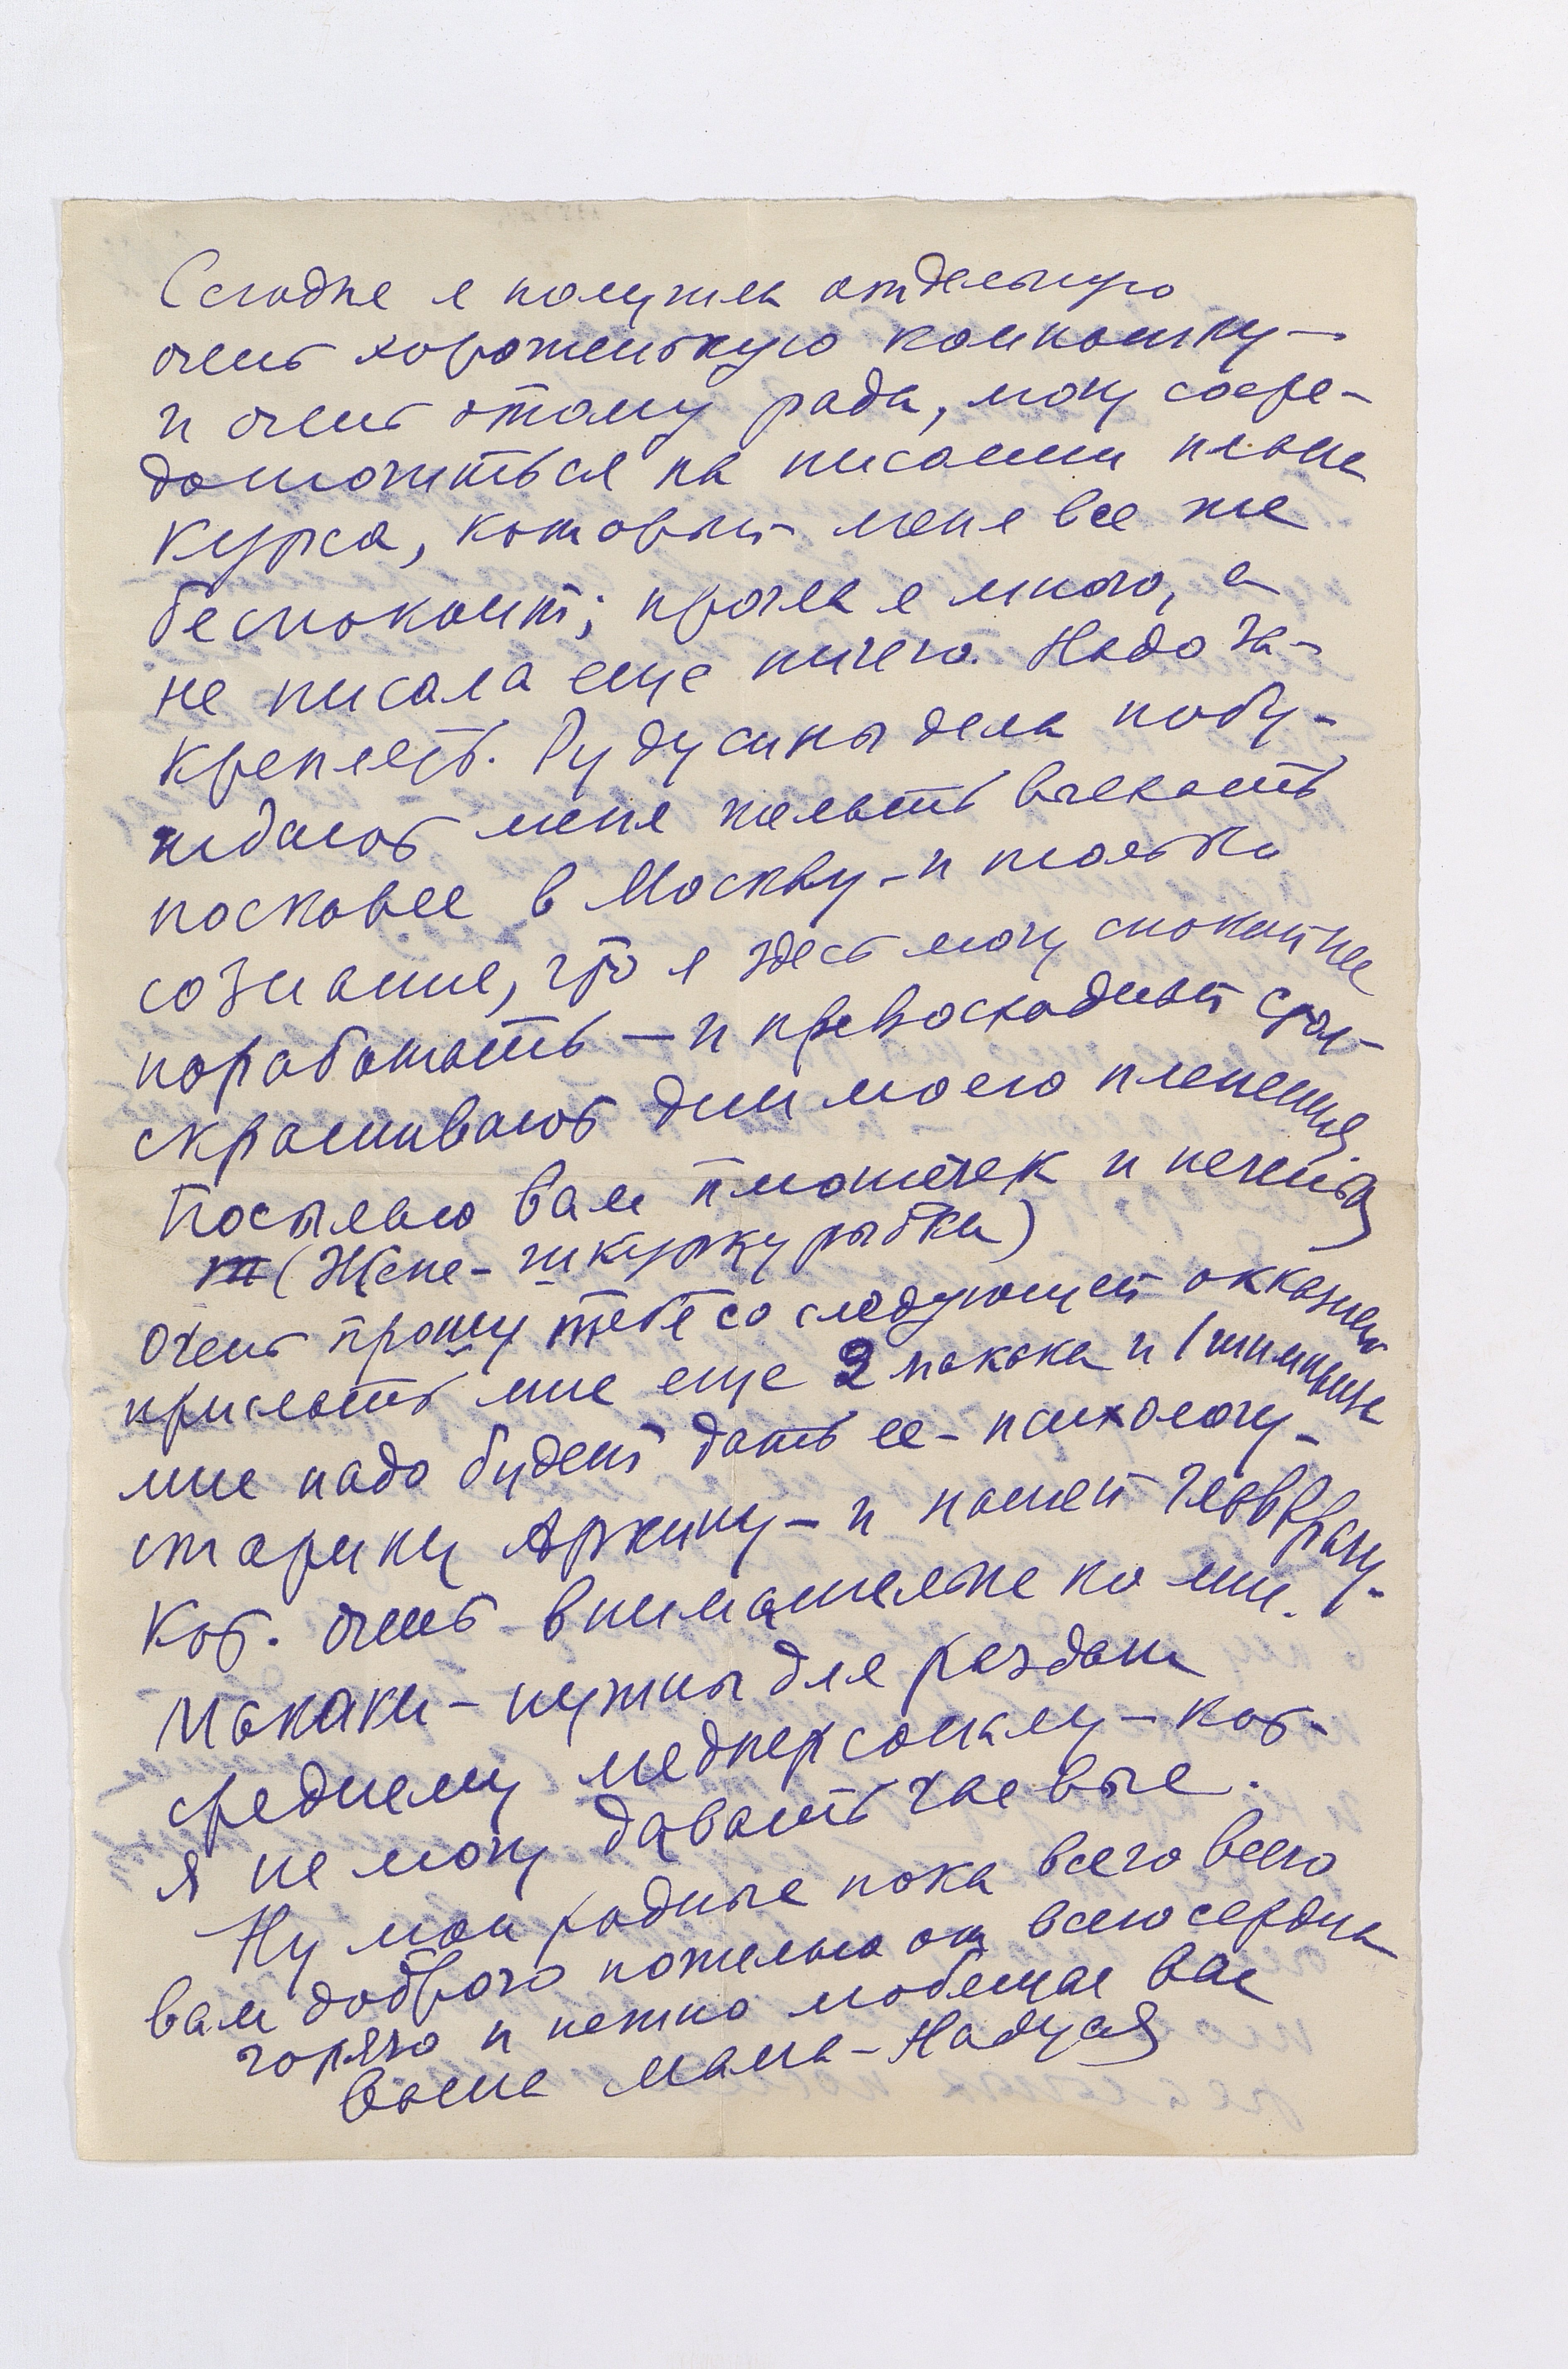 Сегодня я получила отдельную
очень хорошенькую комнатку —
и очень этому рада, могу сосре-
доточиться на писании плана
курса, который меня все же
беспокоит; прочла я много, а
не писала еще ничего. Надо за-
креплять. Рудусины дела побу-
ждают меня желать выехать
поскорее в Москву - и только
сознание, что я здесь могу спокойнее
поработать — и превосходный
скрашивают дни моего пленения.
Посылаю вам тянучек и печенья
(Жене - шкурку рыбки)
Очень прошу тебя со следующей окказией
прислать мне еще 2 макака и 1 шимпанзе
мне надо будет дать ее - психологу -
старику Аркину - и нашей главврачу -
кот. очень внимательна ко мне.
Макаки - нужны для раздачи
среднему медперсоналу - кот.
я не могу давать чаевые.
Ну мои родные пока всего всего
вам доброго пожелаю от всего сердца
горячо и нежно любящая вас
Ваша мама - Надуся